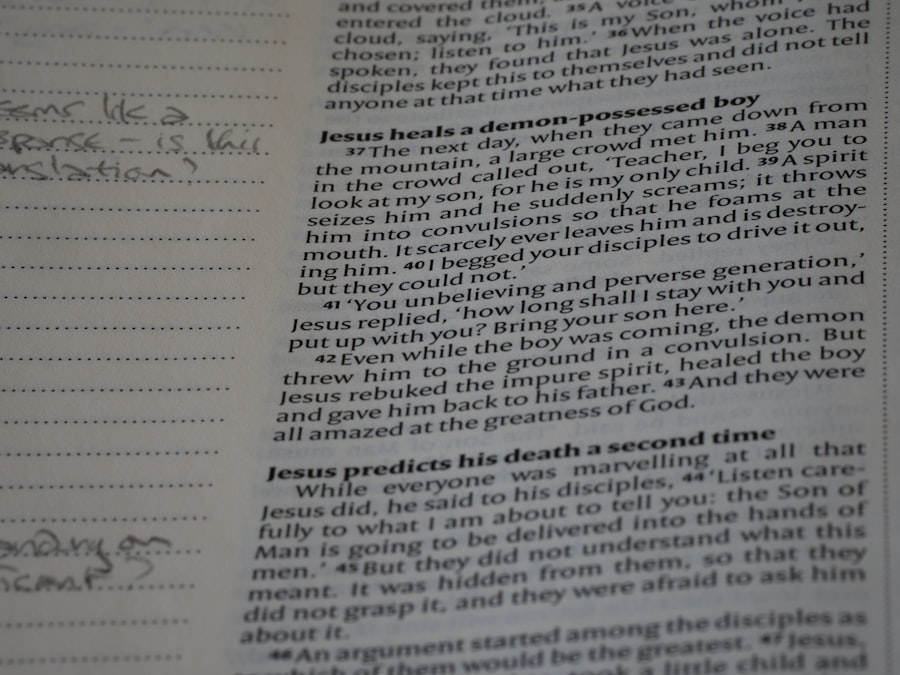 and covered them,
entered the cloud. 35 A voice
cloud, saying, 'This is my Son, whom
chosen; listen to him.' 36 When the voice had
spoken, they found that Jesus was alone. The
disciples kept this to themselves and did not tell
anyone at that time what they had seen.
Jesus heals a demon-possessed boy
37 The next day, when they came down from
the mountain, a large crowd met him. 38 A man
in the crowd called out, 'Teacher, I beg you to
look at my son, for he is my only child. 39 A spirit
seizes him and he suddenly screams; it throws
him into convulsions so that he foams at the
mouth. It scarcely ever leaves him and is destroy-
ing him. 40 I begged your disciples to drive it out,
but they could not.'
41 'You unbelieving and perverse generation,'
Jesus replied, 'how long shall I stay with you and
put up with you? Bring your son here.'
42 Even while the boy was coming, the demon
threw him to the ground in a convulsion. But
Jesus rebuked the impure spirit, healed the boy
and gave him back to his father. 43 And they were
all amazed at the greatness of God.
Jesus predicts his death a second time
While everyone was marvelling at all that
Jesus did, he said to his disciples, 44 'Listen care-
fully to what I am about to tell you: the Son of
Man is going to be delivered into the hands of
men.' 45 But they did not understand what this
meant. It was hidden from them, so that they
did not grasp it, and they were afraid to ask him
about it.
46 An argument started among the disciples as
which of them would be the greatest. 47 Jesus,
took a little child and
like a
is this